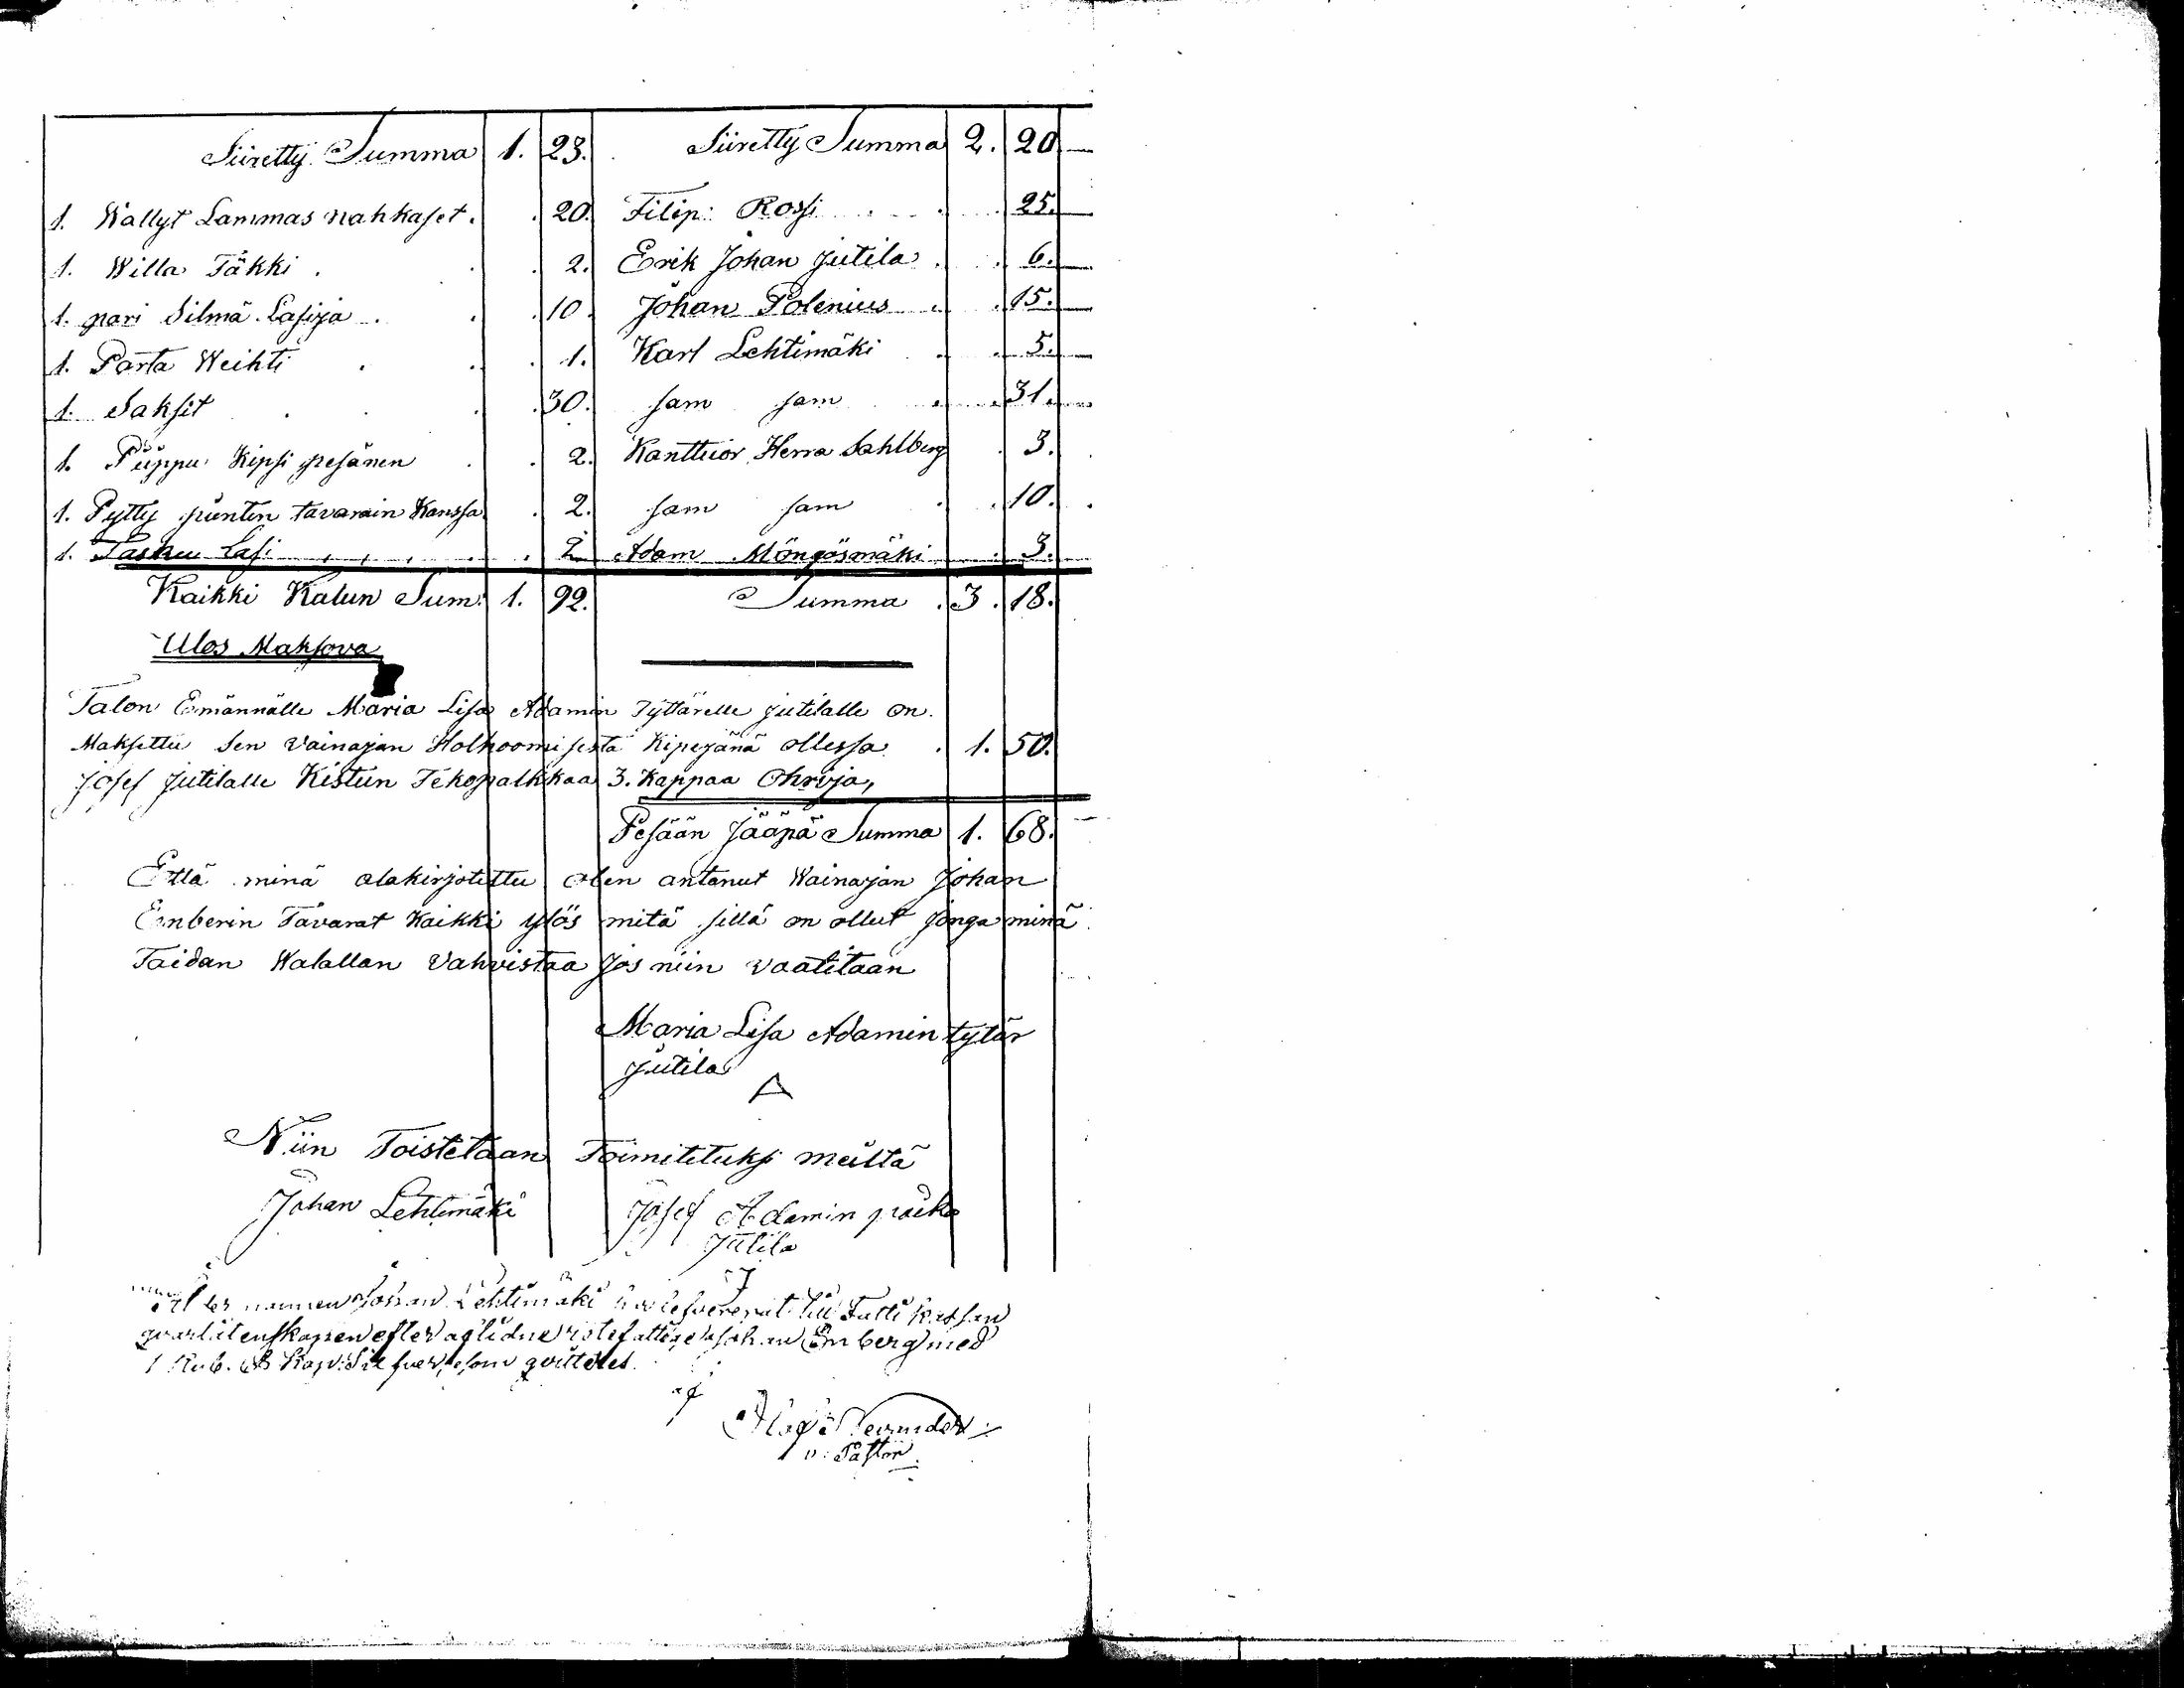 Siiretty Summa 1. 23. Siiretty Summa 2. 20
1. Wällyt Lammas nahkaset. 20. Filip: Rossi 25.
1. Willa Täkki. 2. Erik Johan Jutila 6.
1. pari Silmä Lasija. 10. Johan Polenius 15.
1. Parta Weihti 1. Karl Lehtimäki 5.
1. Saksit 30. sam sam 31.
1. Piippu Kipsi pesänen 2. Kanttiior Herra Sahlberg 3.
1. Pytty pienten tavarain Kanssa. 2. sam sam 10.
1. Tasku Lasi 2 Adam Möngösmäki 3.
Kaikki Kalun Sum: 1. 92. Summa 3. 18.
Ulos Maksova
Talon Emännälle Maria Lisa Adamin Tyttärelle Jutilalle on.
Maksettu Sen Vainajan Holhoomisesta Kipeänä ollessa 1. 50.
Josef Jutilalle Kistun Tekopalkkaa 3. Kappaa Ohrija,
Pesään Jääpä Summa 1. 68.
Että minä alakirjotettu olen antanut Wainajan Johan
Emberin Tavarat Kaikki ylös mitä sillä on ollut jonga minä
Taidan Walallan Vahvistaa Jos niin vaatitaan
Maria Lisa Adamin tytär
Jutila
Niin Toistetaan Toimitetuksi meiltä
Johan Lehtimäki Josef Adamin poika
Jutila
Johan Lehtimäki
efter aflidne Johan Emberg med
1 Rub. 68 Kop. Silfver, som qvitteras.
af
v: Pastor